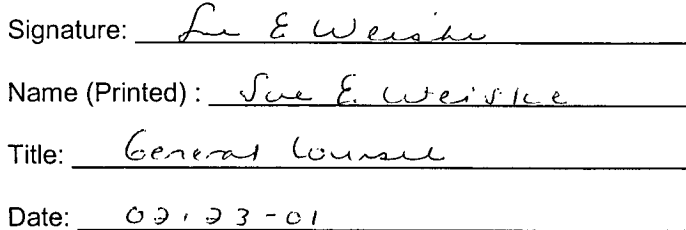 Signature: Sue E Weiske
Name (Printed) : Sue E. Weiske
Title: General Counsel
Date: 02.23-01